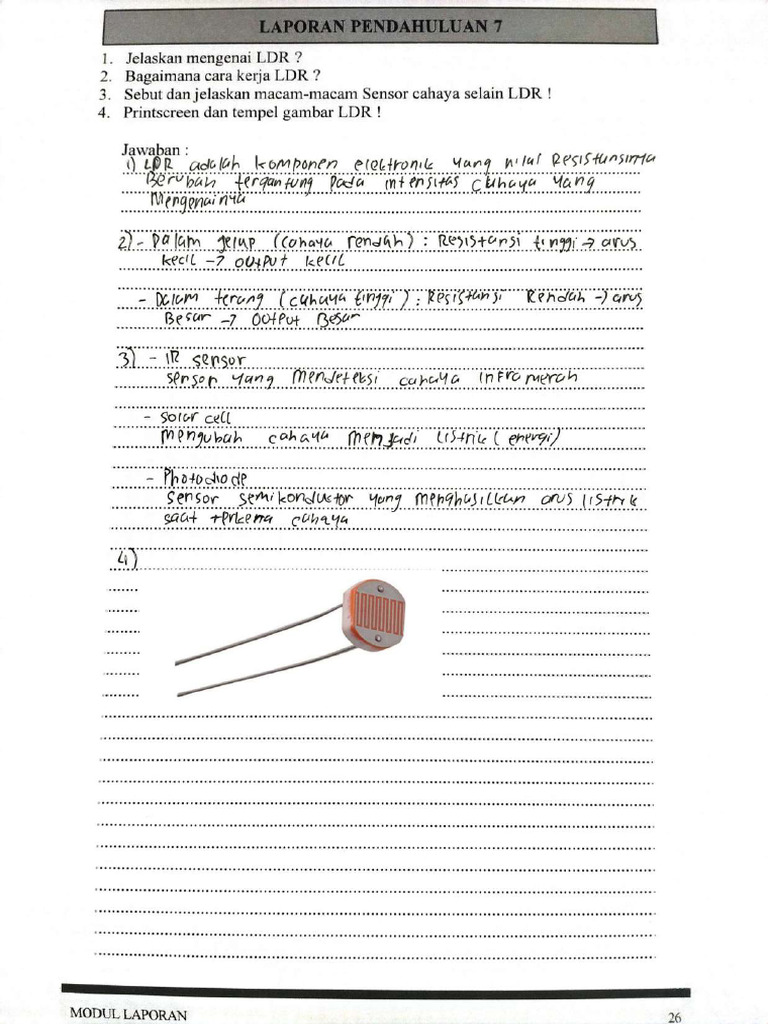 LAPORAN PENDAHULUAN 7
1. Jelaskan mengenai LDR ?
2. Bagaimana cara kerja LDR ?
3. Sebut dan jelaskan macam-macam Sensor cahaya selain LDR !
4. Printscreen dan tempel gambar LDR !
Jawaban :
1) LDR adalah komponen elektronik yang nilai Resistansinya
Berubah tergantung pada intensitas cahaya yang
Mengenainya
2) - Dalam gelap (cahaya rendah) : Resistansi tinggi → arus
kecil → output kecil
- Dalam terang (cahaya tinggi) : Resistansi Rendah → arus
Besar → Output Besar
3) - IR sensor
sensor yang Mendeteksi cahaya inframerah
- solar cell
Mengubah cahaya menjadi Listrik ( energi)
- Photodiode
Sensor semikonductor yang menghasilkan arus listrik
saat terkena cahaya
4)
MODUL LAPORAN
26